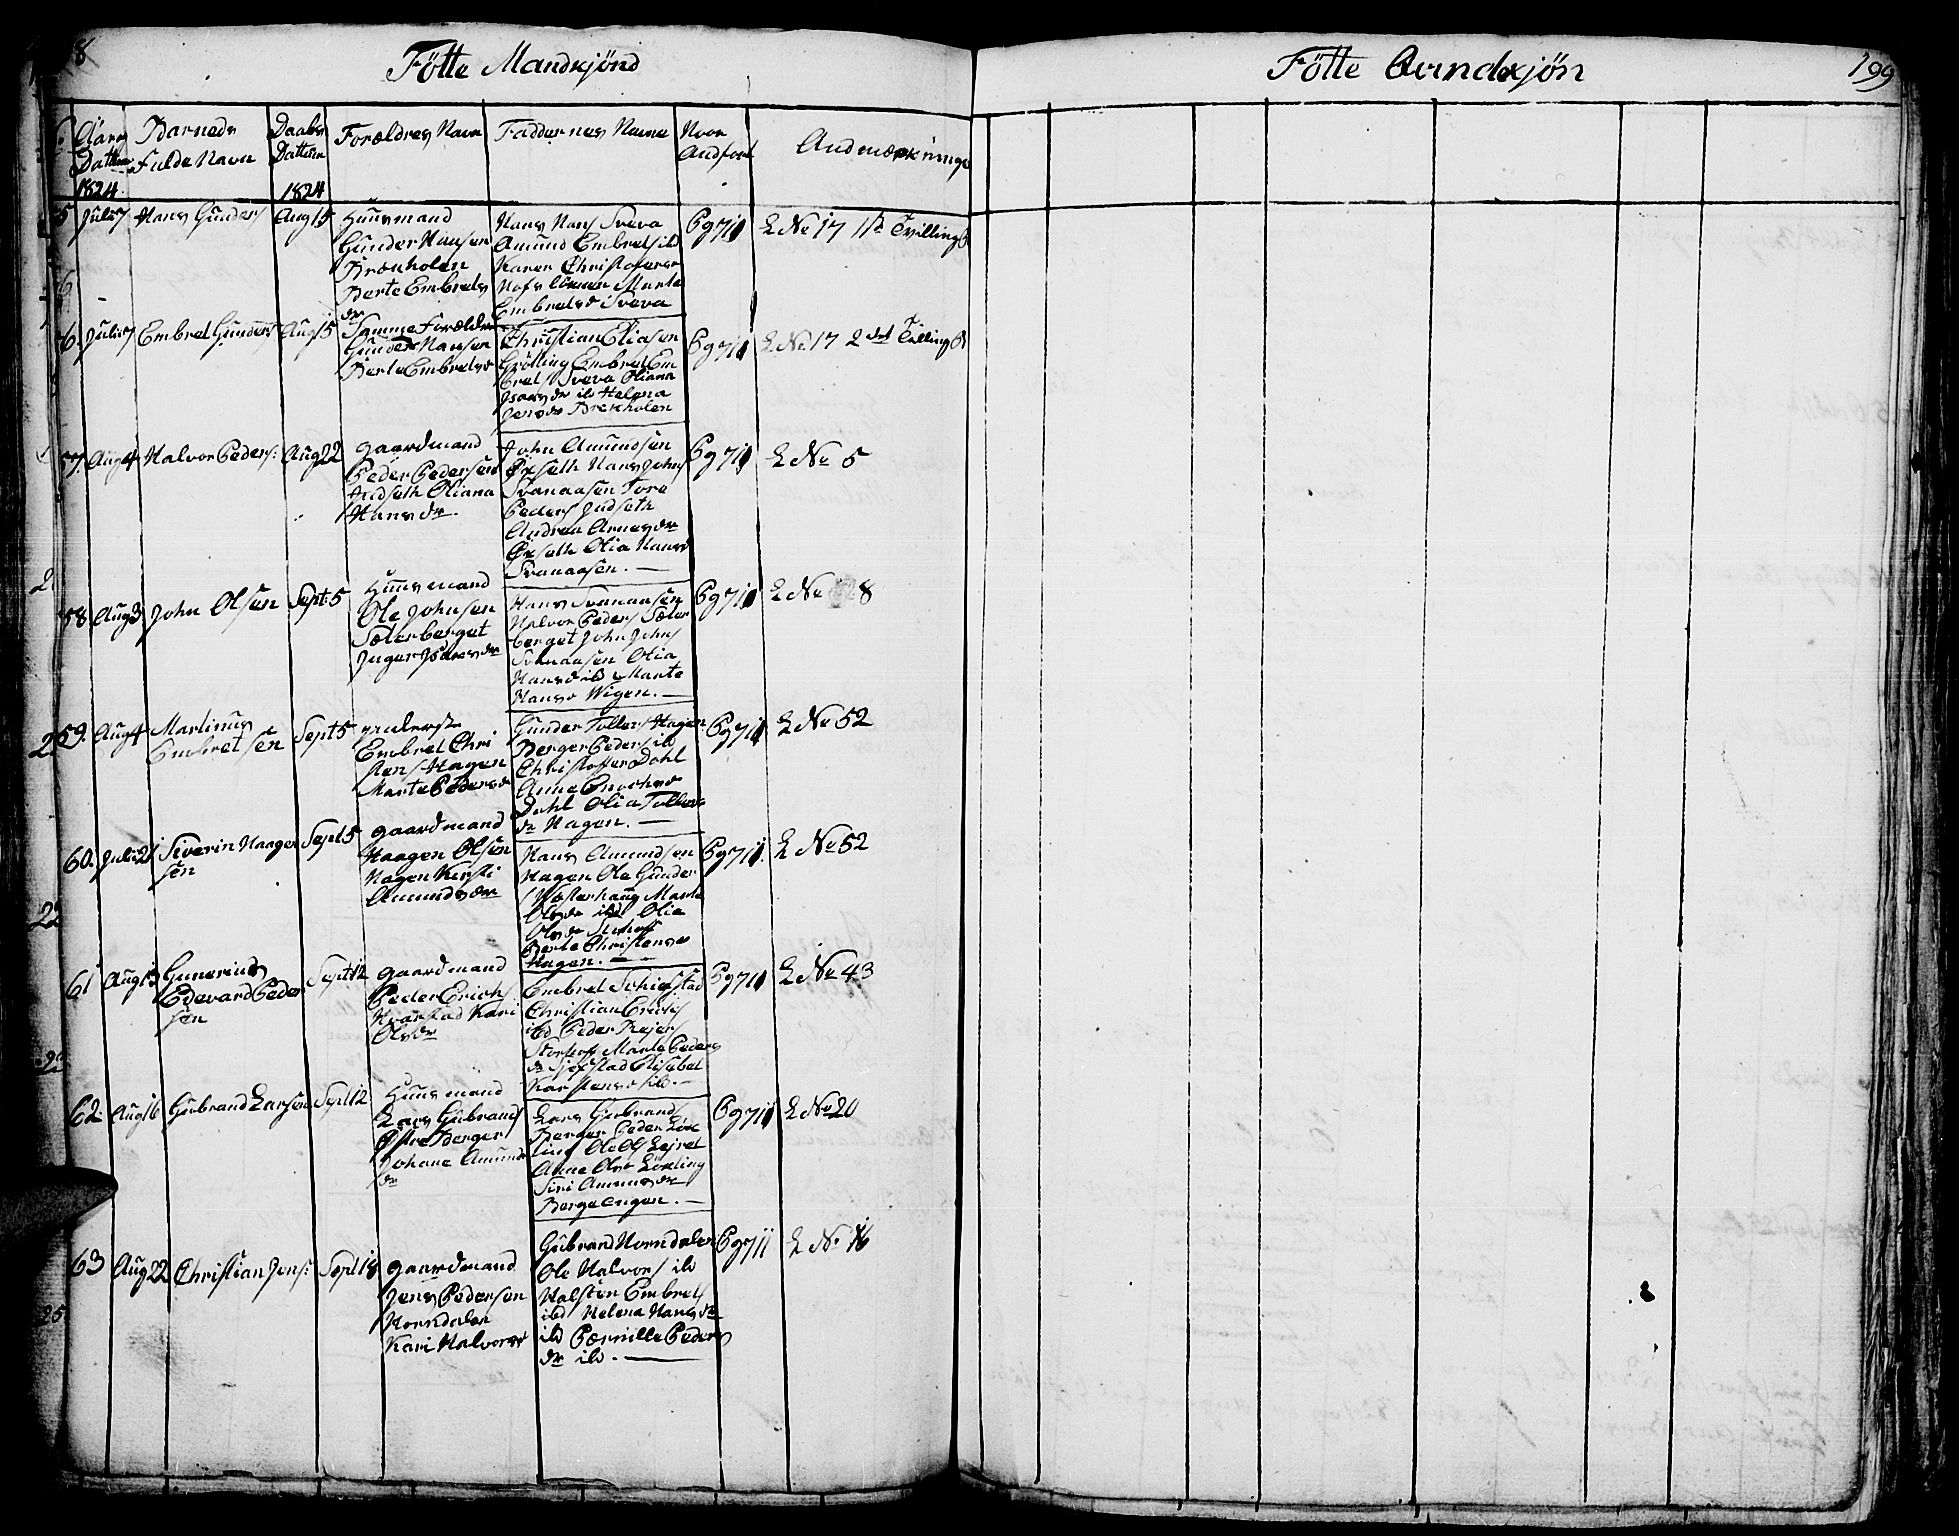 8
Fötte Mandkjönd
Aarg Datten 1824
Barneds Fulde Navn
Daabs Datten 1824
Forældres Navn
Faddernes Navne
Hvor Andført
Andmærkninge
5 Juli 7 Hans Gunders Aug 15
Huusmand
Gunder Hansen
Brækholen
Berte Embrets
dr
Hans Hans Sveva
Amund Embrets ibd
Karen Christofersr
Marte
Embretsd Sveva
Pg 711
L No 17 1ste Tvilling
6. Juli 7 Embret Gunders Aug 15
Samme Foreldre
Gunder Hansen
Berte Embretsd
Christian Eliasen
Grötting Embret Em
brets Sveva Oliana
Isacsdr ib Helena
Jensdr Brekholen
Pg 711
L No 17 2det Tvilling
57. Aug 4 Halvor Peders: Aug 22
gaardmand
Peder Pedersen
Indseth Oliana
Hansdr.
John Amundsen
Öxseth Hans Johns
Svanaasen Tore
Peders Indseth
Andrea Arnesdr
Öxseth Olia Hansd
Svanaasen.
Pg 711
L No 5
58. Aug 3 John Olsen Sept 5
Huusmand
Ole Johnsen
Sæterberget
Inger Isacsdr
Hans Svanaasen
Halvor Peders Sæter
berget John Johns
Svanaasen Olia
Hansd ibd Marte
Hansd Wigen.
Pg 711
L No 8
59. Aug 4 Martinus Embretsen Sept 5
Embret Chri
stens Hagen
Marte Pedersd
Gunder Tollers Hagen
Berger Peders ib
Christoffer Dahl
Anne Enochsd
Dahl Olia Tollers
dr Hagen.
Pg 711
L No 52
60. Juli 21 Siverin Haagen
sen Sept 5
gaardmand
Haagen Olsen
Hagen Kirsti
Amundsdr
Hans Amundsen
Hagen Ole Gunder
s Westerhaug Marte
Olsdr ibd Olia
Olsdr Storhoff
Berte Christensd
Hagen.
Pg 711.
L No 52
61 Aug 13 Gunerius
Edevard Peder
sen Sept 12
gaardmand
Peder Erichs
Kvarstad Kari
Olsdr
Embret Schiefstad
Christian Erichs
ibd Peder Rejers
Storhof Marte Peders
dr Sjefstad Elisabet
Karstensd ib.
Pg 711
L No 43
62 Aug 16 Gubrand Larsen Sept 12
Huusmand
Lars Gubrands
Østre Berger
Johane Amunds
dr
Lars Gubrands
Berger Peder Löx
ting Ole Ols Lejret
Anne Olsd Löxting
Siri Amunsdr
Bergeengen.
Pg 711
L No 20
63 Aug 22 Christian Jens: Sept 18
gaardmand
Jens Pedersen
Horndalen
Kari Halvorsd
Gubrand Horndalen
Ole Halvors ib
Halsten Embrets
ibd Helena Hansdr
ib Pærnille Peders
dr ib.
Pg 711
L No 16
Fötte Qvindekjön
199